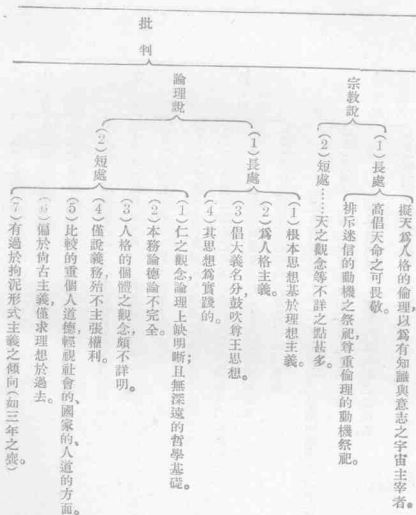 批判
宗教說
(1)長處
擬天爲人格的倫理，以爲有知識與意志之宇宙主宰者。
高倡天命之可畏敬。
排斥迷信的動機之祭祀，尊重倫理的動機祭祀。
(2)短處……天之觀念等不詳之點甚多。
論理說
(1)長處
(1)根本思想基於理想主義。
(2)爲人格主義。
(3)倡大義名分，鼓吹尊王思想。
(4)其思想爲實踐的。
(2)短處
(1)仁之觀念，論理上缺明晰；且無深遠的哲學基礎。
(2)本務論德論不完全。
(3)人格的個體之觀念，頗不詳明。
(4)僅說義務殆不主張權利。
(5)比較的重個人道德，輕視社會的、國家的、人道的方面。
(6)偏於尙古主義，僅求理想於過去。
(7)有過於拘泥形式主義之傾向(如三年之喪)。